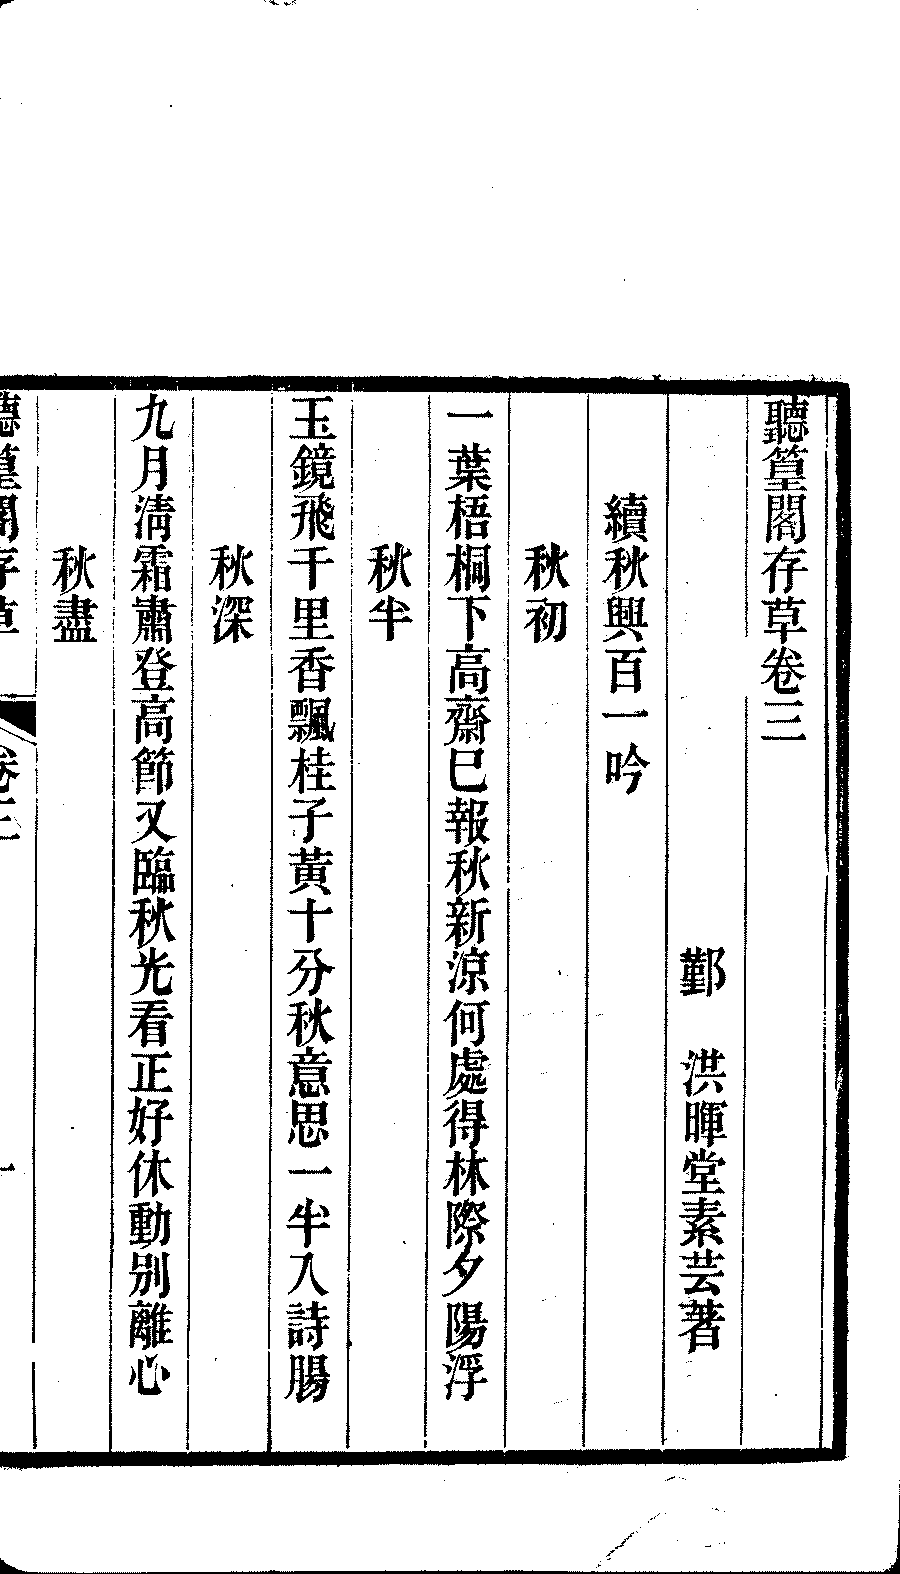 聽篁閣存草卷三
鄞　洪暉堂素芸著
續秋興百一吟
秋初
一葉梧桐下高齋巳報秋新涼何處得林際夕陽浮
秋半
玉鏡飛千里香飄桂子黃十分秋意思一半入詩腸
秋深
九月淸霜肅登高節又臨秋光看正好休動別離心
秋盡
聽篁閣存草　卷三　一